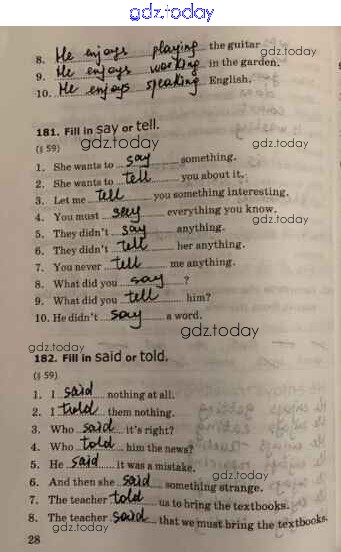 gdz.today
8. He enjoys playing the guitar
gdz.today
9. He enjoys working in the garden.
10. He enjoys speaking English.
181. Fill in say or tell.
gdz.today
(§ 59)
1. She wants to say something.
2. She wants to tell you about it.
3. Let me tell you something interesting.
4. You must say everything you know.
gdz.today gdz.today
5. They didn't say anything.
6. They didn't tell her anything.
7. You never tell me anything.
8. What did you say ?
9. What did you tell him?
10. He didn't say a word.
gdz.today
gdz.today
182. Fill in said or told.
gdz.today
(§ 59)
1. I said nothing at all.
2. I told them nothing.
3. Who said it's right?
4. Who told him the news?
5. He said it was a mistake.
gdz.today
6. And then she said something strange.
7. The teacher told us to bring the textbooks.
8. The teacher said that we must bring the textbooks.
gdz.today
gdz.today
28